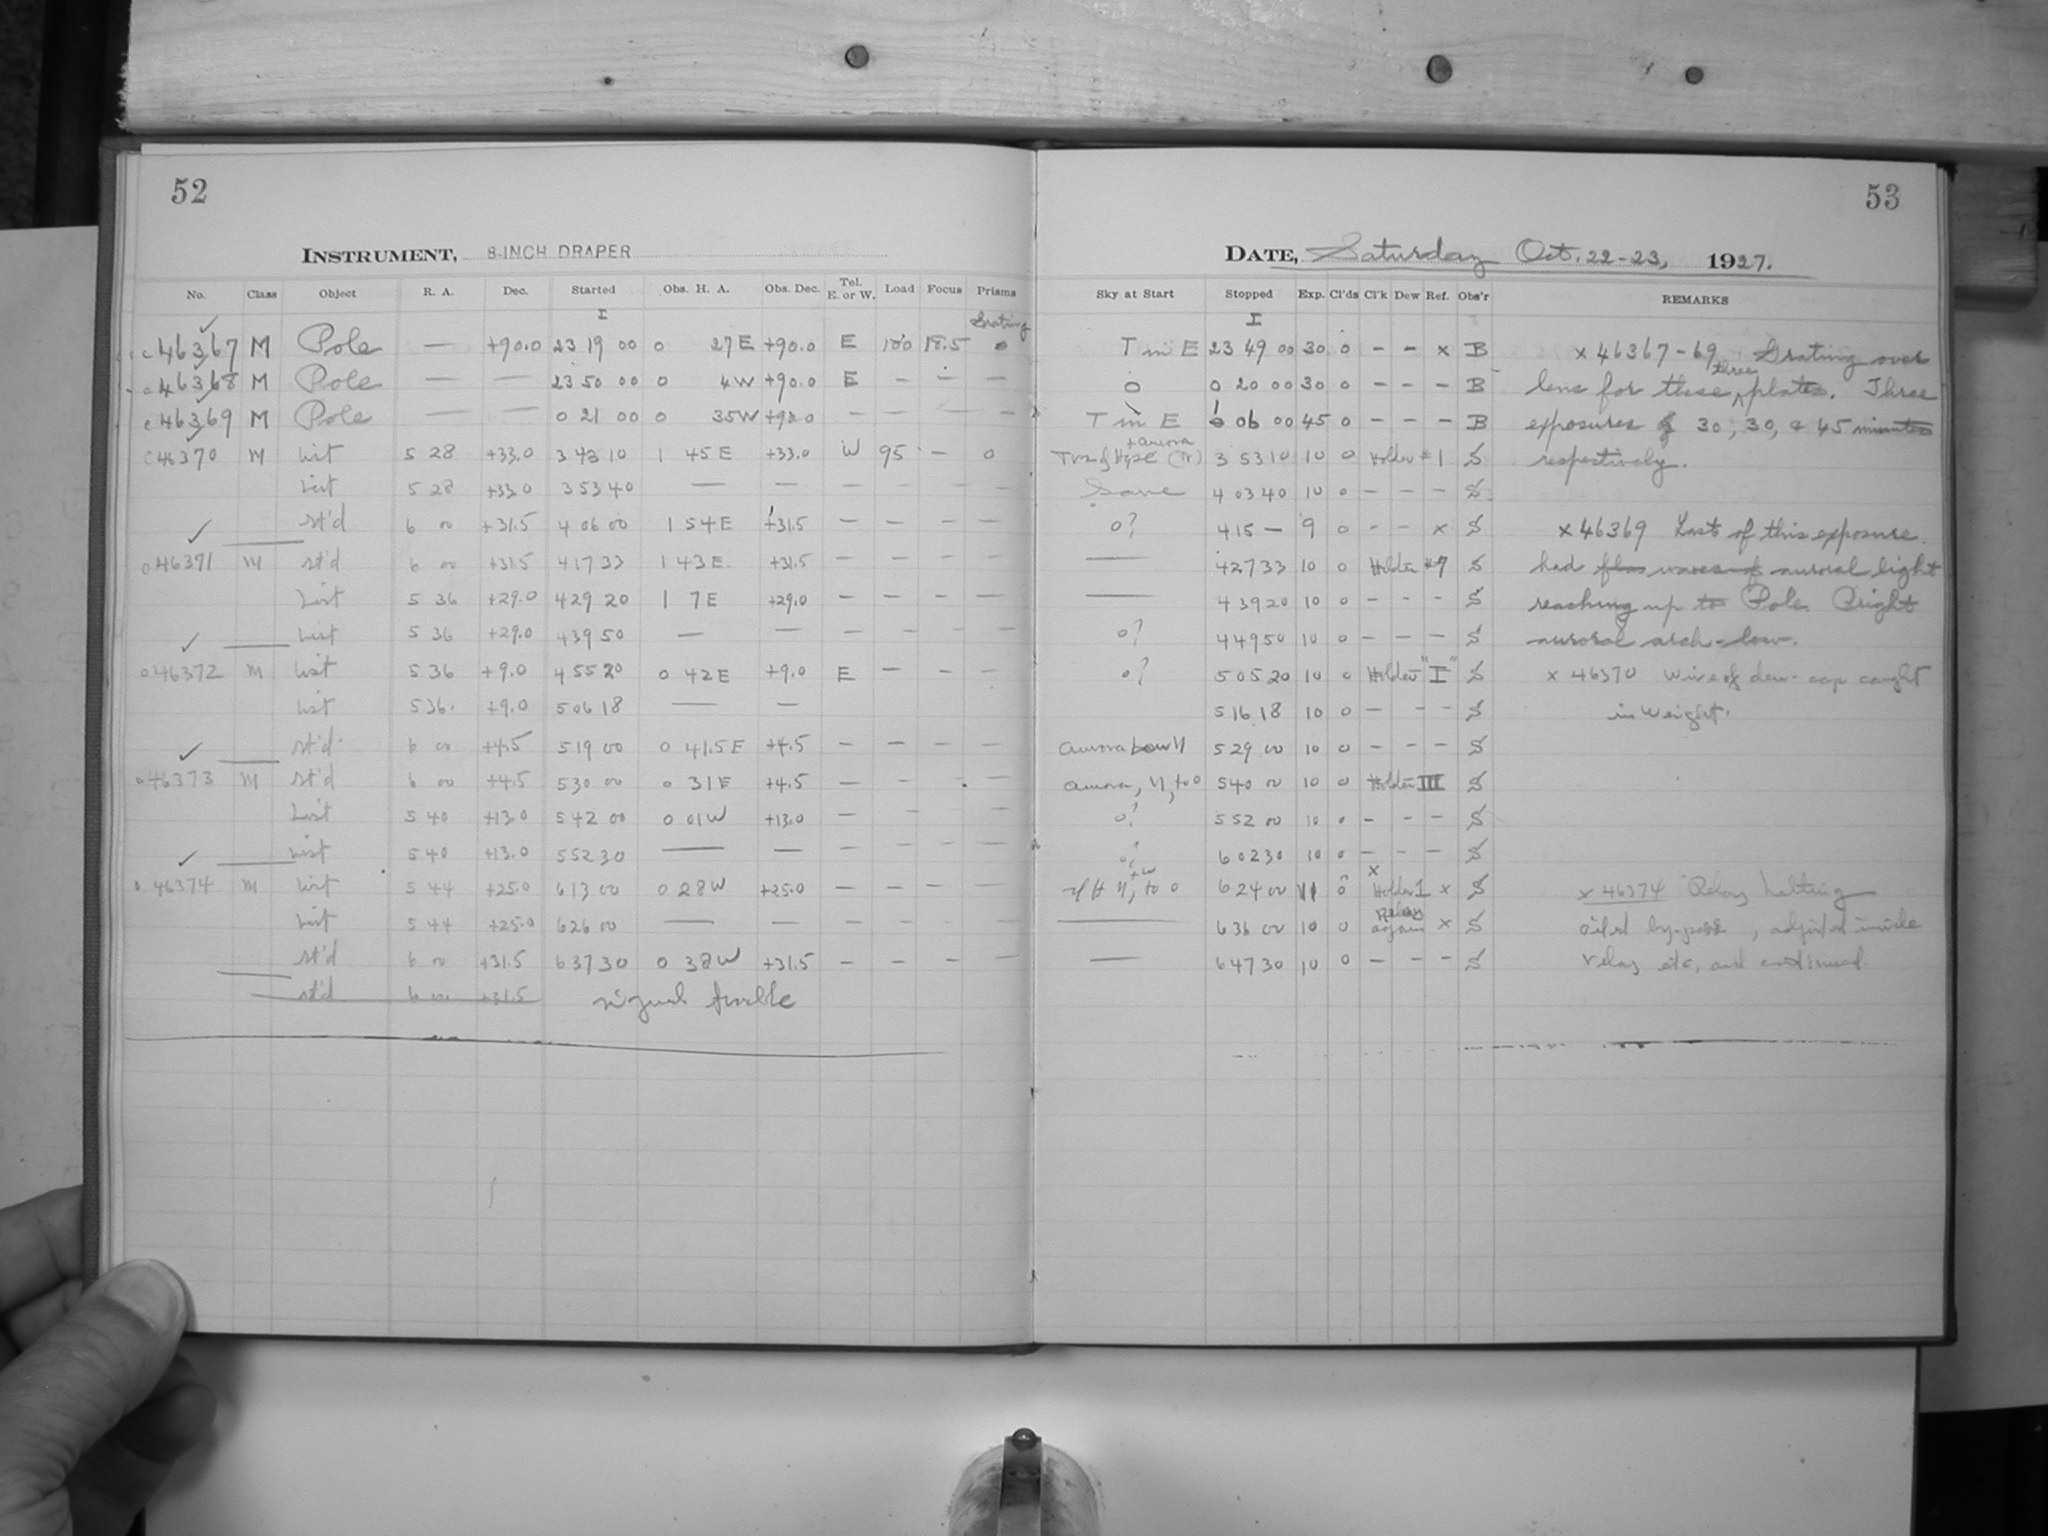 52
INSTRUMENT, 8-INCH DRAPER
No. Class Object R. A. Dec. Started Obs. H. A. Obs. Dec. Tel. E. or W. Load Focus Prisms
I Grating
c46367 M Pole — +90.0 23 19 00 0 27 E +90.0 E 100 18.5
c46368 M Pole — — 23 50 00 0 4 W +90.0 E — — —
c46369 M Pole — — 0 21 00 0 35 W +90.0 — — — —
c46370 M List 5 28 +33.0 3 43 10 1 45 E +33.0 W 95 — 0
List 5 28 +33.0 3 53 40 — — — — — —
St'd 6 00 +31.5 4 06 00 1 54 E +31.5 — — — —
c46371 M St'd 6 00 +31.5 4 17 33 1 43 E +31.5 — — — —
List 5 36 +29.0 4 29 20 1 7 E +29.0 — — — —
List 5 36 +29.0 4 39 50 — — — — — —
c46372 M List 5 36 +9.0 4 55 20 0 42 E +9.0 E — — —
List 5 36 +9.0 5 06 18 — —
St'd 6 00 +4.5 5 19 00 0 41.5 E +4.5 — — — —
c46373 M St'd 6 00 +4.5 5 30 00 0 31 E +4.5 — — —
List 5 40 +13.0 5 42 00 0 01 W +13.0 — — —
List 5 40 +13.0 5 52 30 — — — — — —
c46374 M List 5 44 +25.0 6 13 00 0 28 W +25.0 — — — —
List 5 44 +25.0 6 26 00 — — — — — —
St'd 6 00 +31.5 6 37 30 0 38 W +31.5 — — — —
St'd 6 00 +31.5 signal trouble
53
DATE, Saturday Oct. 22-23, 1927.
Sky at Start Stopped Exp. Cl'ds Cl'k Dew Ref. Obs'r REMARKS
I
T in E 23 49 00 30 0 — — x B x 46367-69 Grating over
0 0 20 00 30 0 — — — B lens for these three plates. Three
T in E 1 06 00 45 0 — — — B exposures of 30, 30, & 45 minutes
+ aurora 3 53 10 10 0 Holder #1 S respectively.
Same 4 03 40 10 0 — — — S
0? 4 15 — 9 0 — — x S x 46369 Last of this exposure
— 4 27 33 10 0 Holder #7 S had waves of auroral light
— 4 39 20 10 0 — — — S reaching up to Pole. Bright
0? 4 49 50 10 0 — — — S auroral arch - low.
0? 5 05 20 10 0 Holder "I" S x 46370 Wire of dew-cap caught
5 16 18 10 0 — — — S in weight.
aurora low N 5 29 00 10 0 — — — S
aurora, N, to 0 5 40 00 10 0 Holder III S
0? 5 52 00 10 0 — — — S
0? 6 02 30 10 0 — — — S
N, to 0 6 24 00 11 0 x Holder I x S x 46374 Relay halting
— 6 36 00 10 0 Relay again x S oiled by-pass, adjusted inside
— 6 47 30 10 0 — — — S relay etc, and continued.